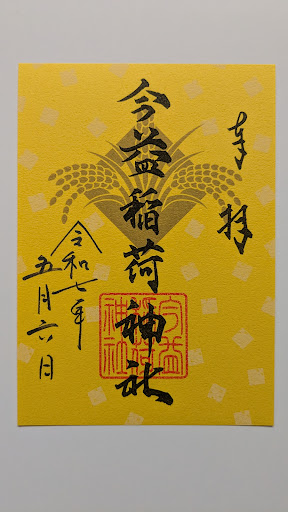 奉拝
今益稲荷神社
令和七年
五月六日
神社